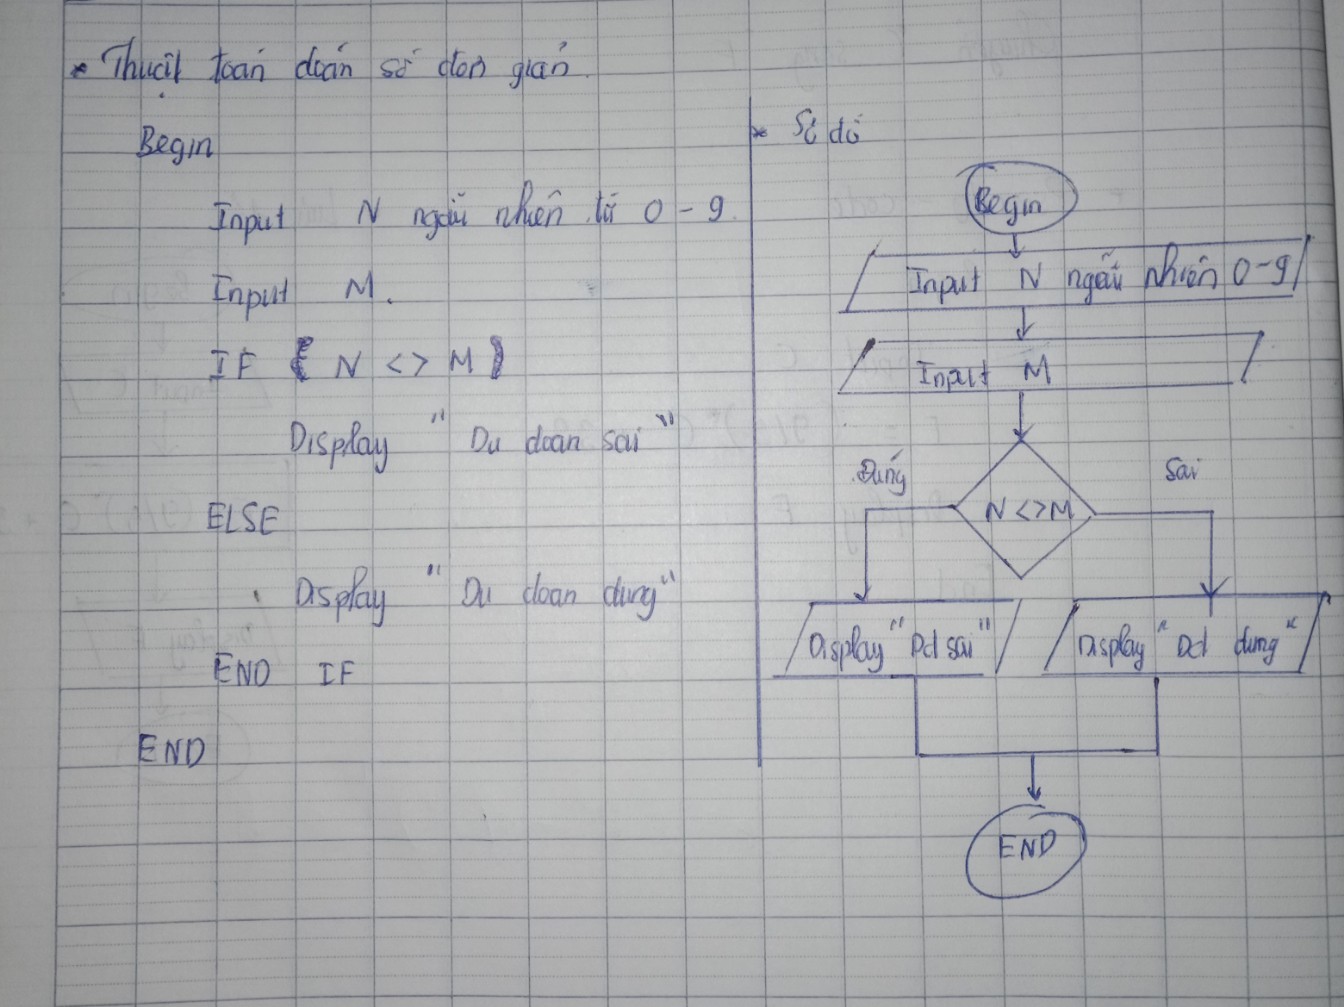 * Thuật toán đoán số đơn giản.
Begin
Input N ngẫu nhiên từ 0 - 9.
Input M.
IF ( N <> M )
Display " Du doan sai "
ELSE
Display " Du doan dung"
END IF
END
* Sơ đồ
Begin
Input N ngẫu nhiên 0-9
Input M
N <> M
Đúng
Sai
Display "Dd sai"
Display "Dd dung"
END